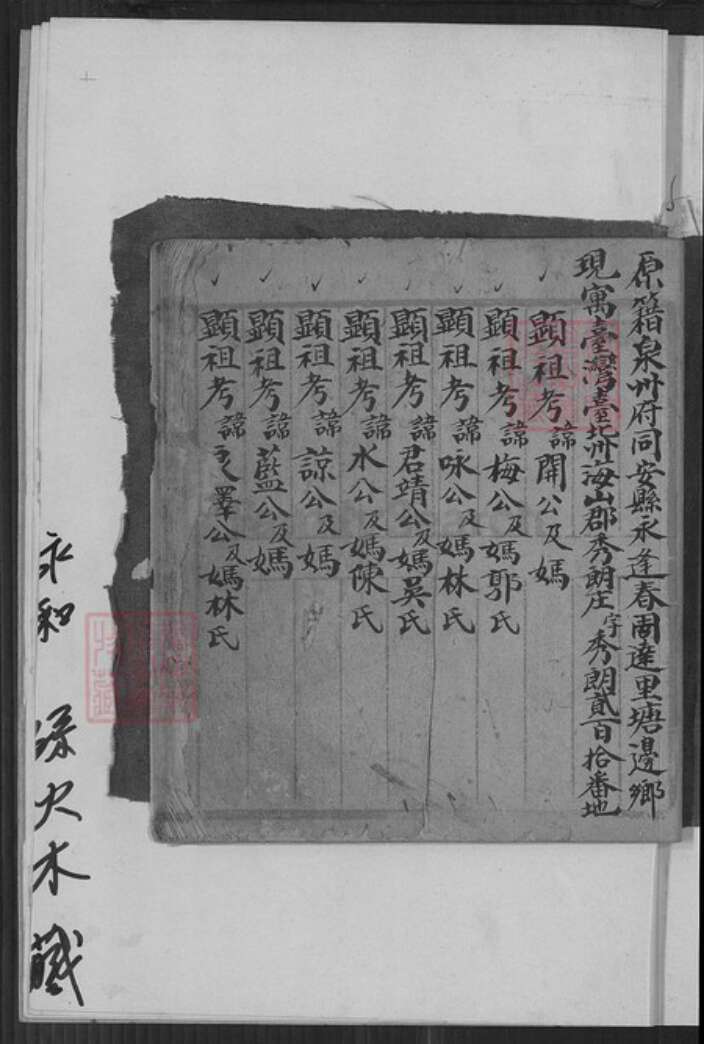 原籍泉州府同安縣永逢春圊達里塘邊鄉
現寓臺灣臺北州海山郡秀朗庄字秀朗貳百拾番地
顯祖考諱開公及媽
顯祖考諱梅公及媽郭氏
顯祖考諱咏公及媽林氏
顯祖考諱君靖公及媽吳氏
顯祖考諱水公及媽陳氏
顯祖考諱諒公及媽
顯祖考諱藍公及媽
顯祖考諱天澤公及媽林氏
永和 大木藏